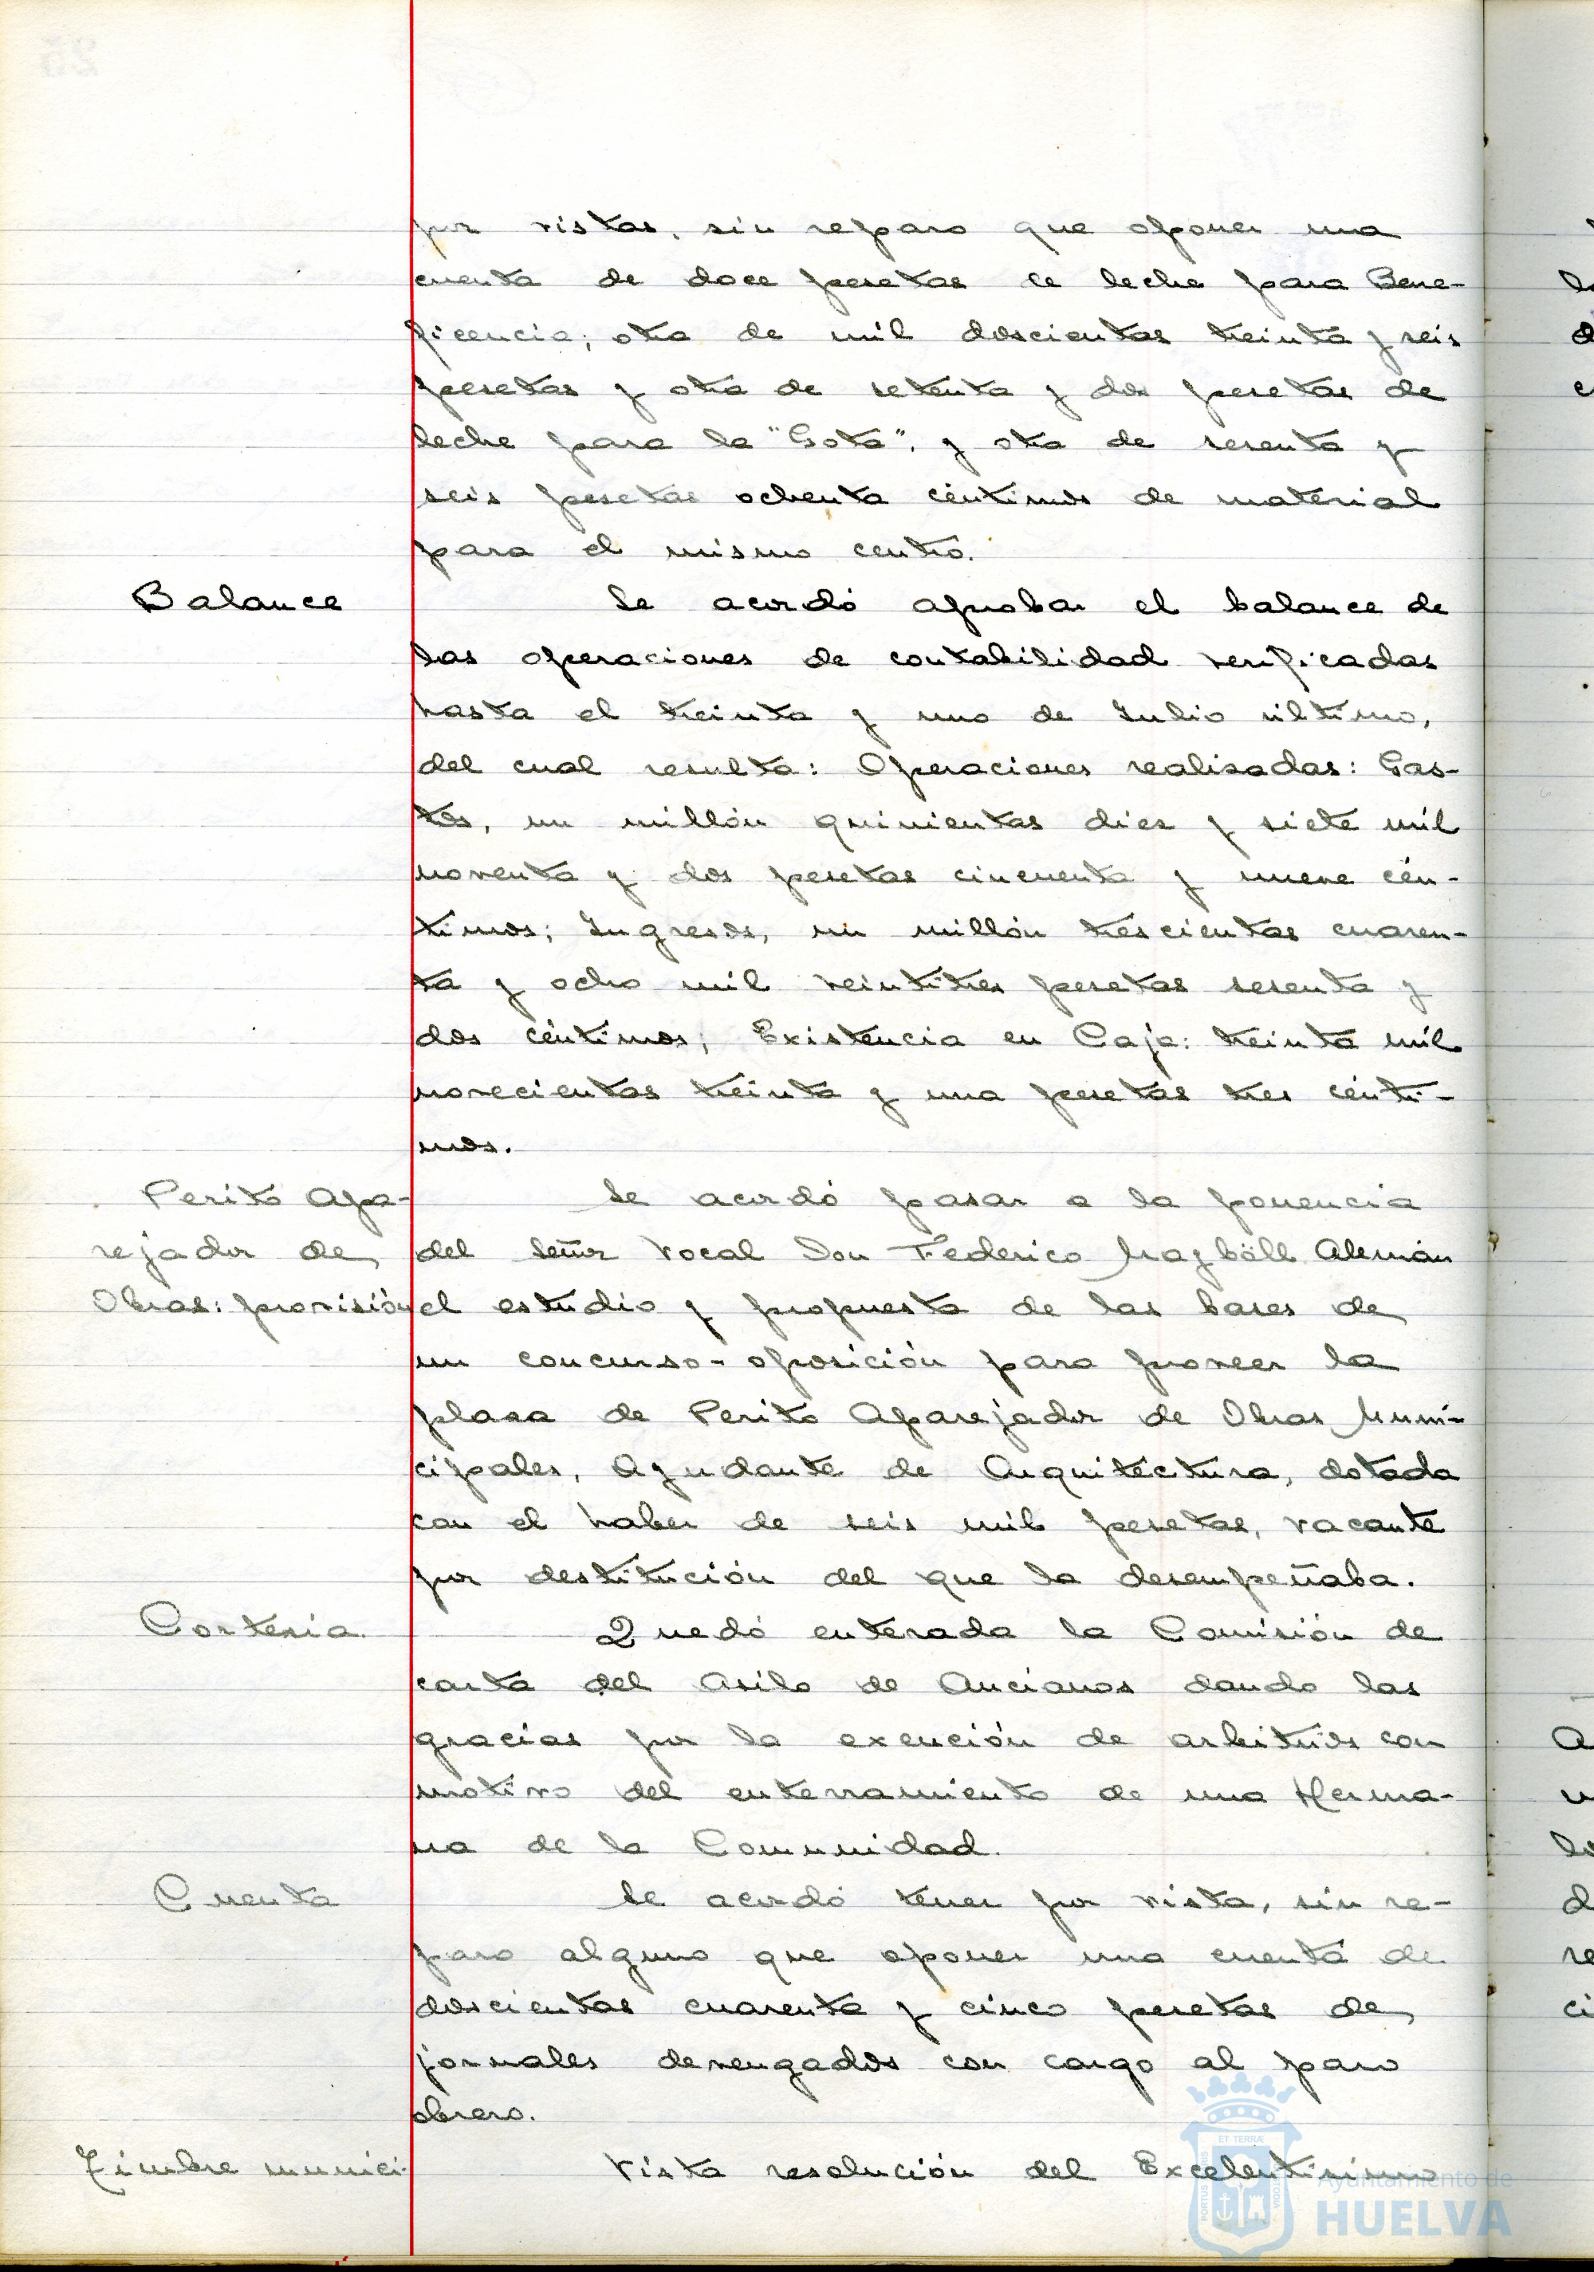 por vistas, sin reparo que oponer una
cuenta de doce pesetas de leche para Bene-
ficencia; otra de mil doscientas treinta y seis
pesetas y otra de setenta y dos pesetas de
leche para la "Gota", y otra de sesenta y
seis pesetas ochenta céntimos de material
para el mismo centro.
Balance
Se acordó aprobar el balance de
las operaciones de contabilidad verificadas
hasta el treinta y uno de Julio último,
del cual resulta: Operaciones realizadas: Gas-
tos, un millón quinientas diez y siete mil
noventa y dos pesetas cincuenta y nueve cén-
timos; Ingresos, un millón trescientas cuaren-
ta y ocho mil veintitres pesetas sesenta y
dos céntimos; Existencia en Caja: treinta mil
novecientas treinta y una pesetas tres cénti-
mos.
Perito Apa-
rejador de
Obras: provisión
Se acordó pasar a la ponencia
del Señor Vocal Don Federico Alemán
el estudio y propuesta de las bases de
un concurso-oposición para proveer la
plaza de Perito Aparejador de Obras Muni-
cipales, Ayudante de Arquitectura, dotada
con el haber de seis mil pesetas, vacante
por destitución del que la desempeñaba.
Cortesia.
Quedó enterada la Comisión de
carta del Asilo de Ancianos dando las
gracias por la exención de arbitrios con
motivo del enterramiento de una Herma-
na de la Comunidad.
Cuenta
Se acordó tener por vista, sin re-
paro alguno que oponer una cuenta de
doscientas cuarenta y cinco pesetas de
jornales devengados con cargo al paro
obrero.
Timbre munici-
Vista resolución del Excelentísimo
Ayuntamiento de
HUELVA